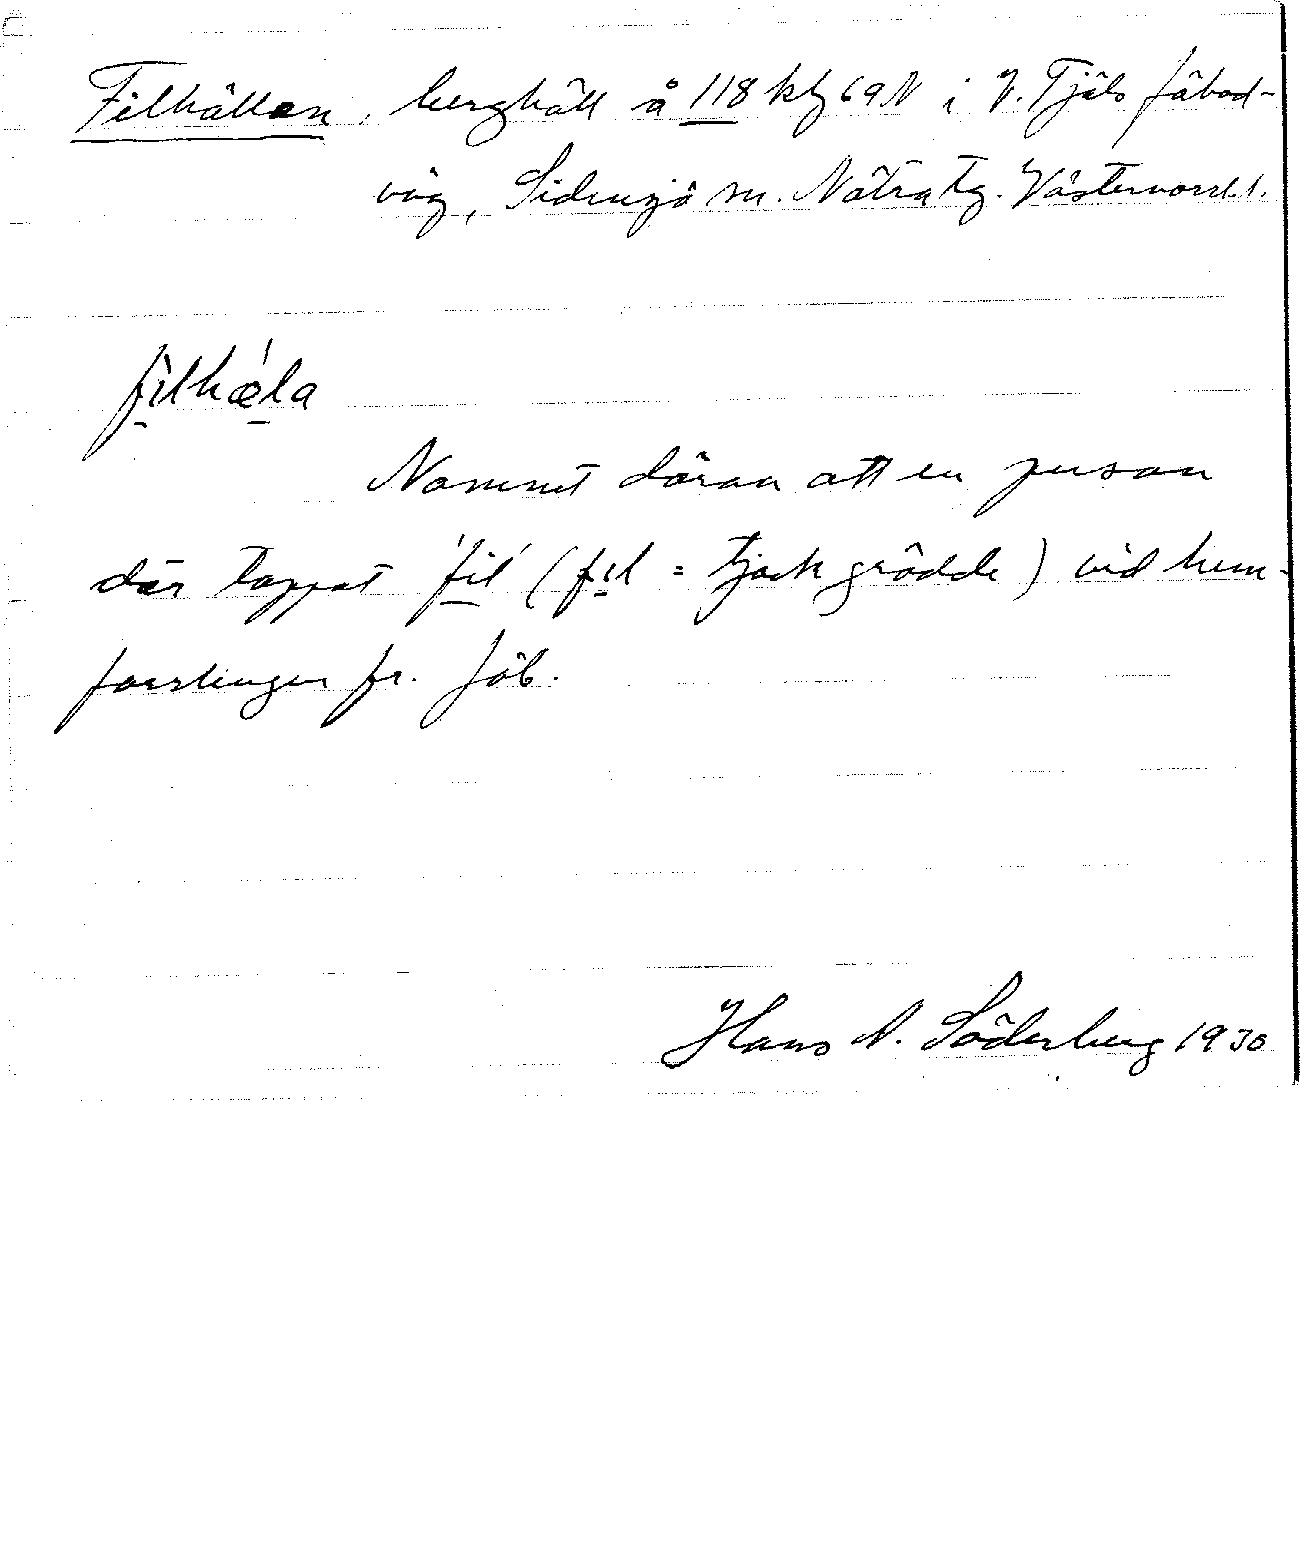 Filhällen, berghäll å 118 kbl 69 N i V. Tjäls fäbod-
väg, Sidensjö sn. Nätra tg. Västernorrl. l.
filhǽla
Namnet därav att en person
där tappat 'fil' (fil = tjock grädde) vid hem-
forslingen fr. fäb.
Hans N. Söderberg 1930